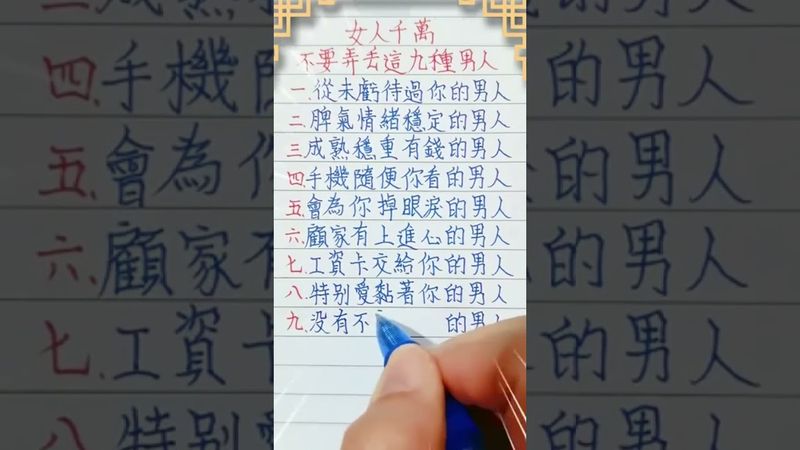 女人千萬
不要弄丟這九種男人
一.從未虧待過你的男人
二.脾氣情緒穩定的男人
三.成熟穩重有錢的男人
四.手機隨便你看的男人
五.會為你掉眼淚的男人
六.顧家有上進心的男人
七.工資卡交給你的男人
八.特別愛黏著你的男人
九.没有不 的男人